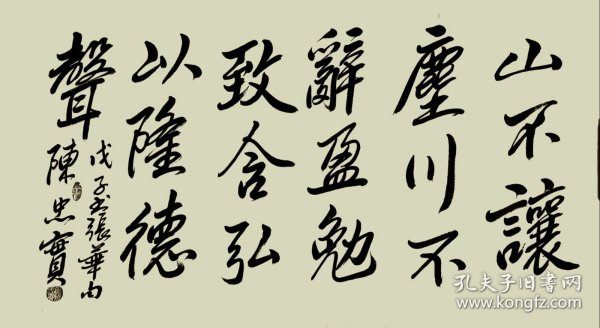 山不讓
塵川不
辭盈勉
致含弘
以隆德
聲
戊子书張華句
陳忠實
孔夫子旧书网
www.kongfz.com